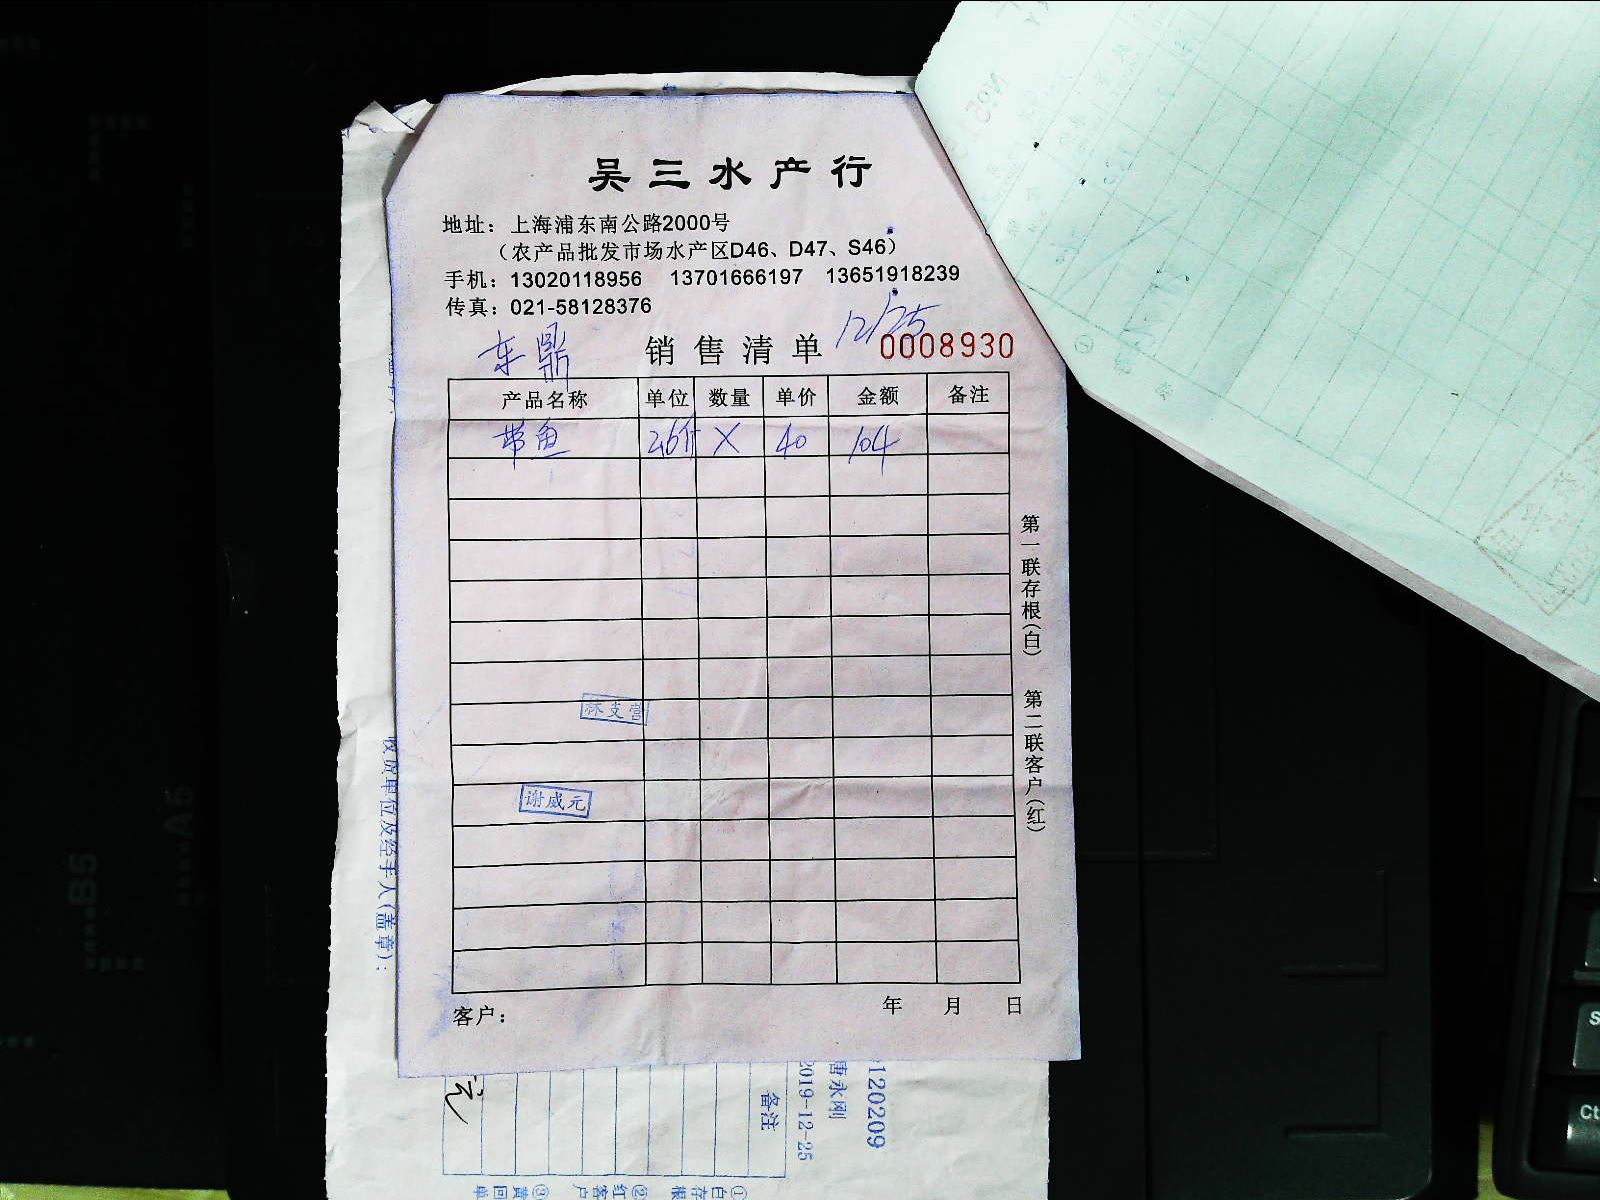 吴三水产行
地址：上海浦东南公路2000号
（农产品批发市场水产区D46、D47、S46）
手机：13020118956 13701666197 13651918239
传真：021-58128376
东鼎 销售清单 12/25
0008930
产品名称 单位 数量 单价 金额 备注
带鱼 2.6斤 X 40 104
第一联存根（白） 第二联客户（红）
林支营
谢威元
客户： 年 月 日
收货单位及经手人（盖章）：
120209
唐永刚
2019-12-25
备注
元
①白存根 ②红客户 ③黄回单
B5
A5
S
Ct